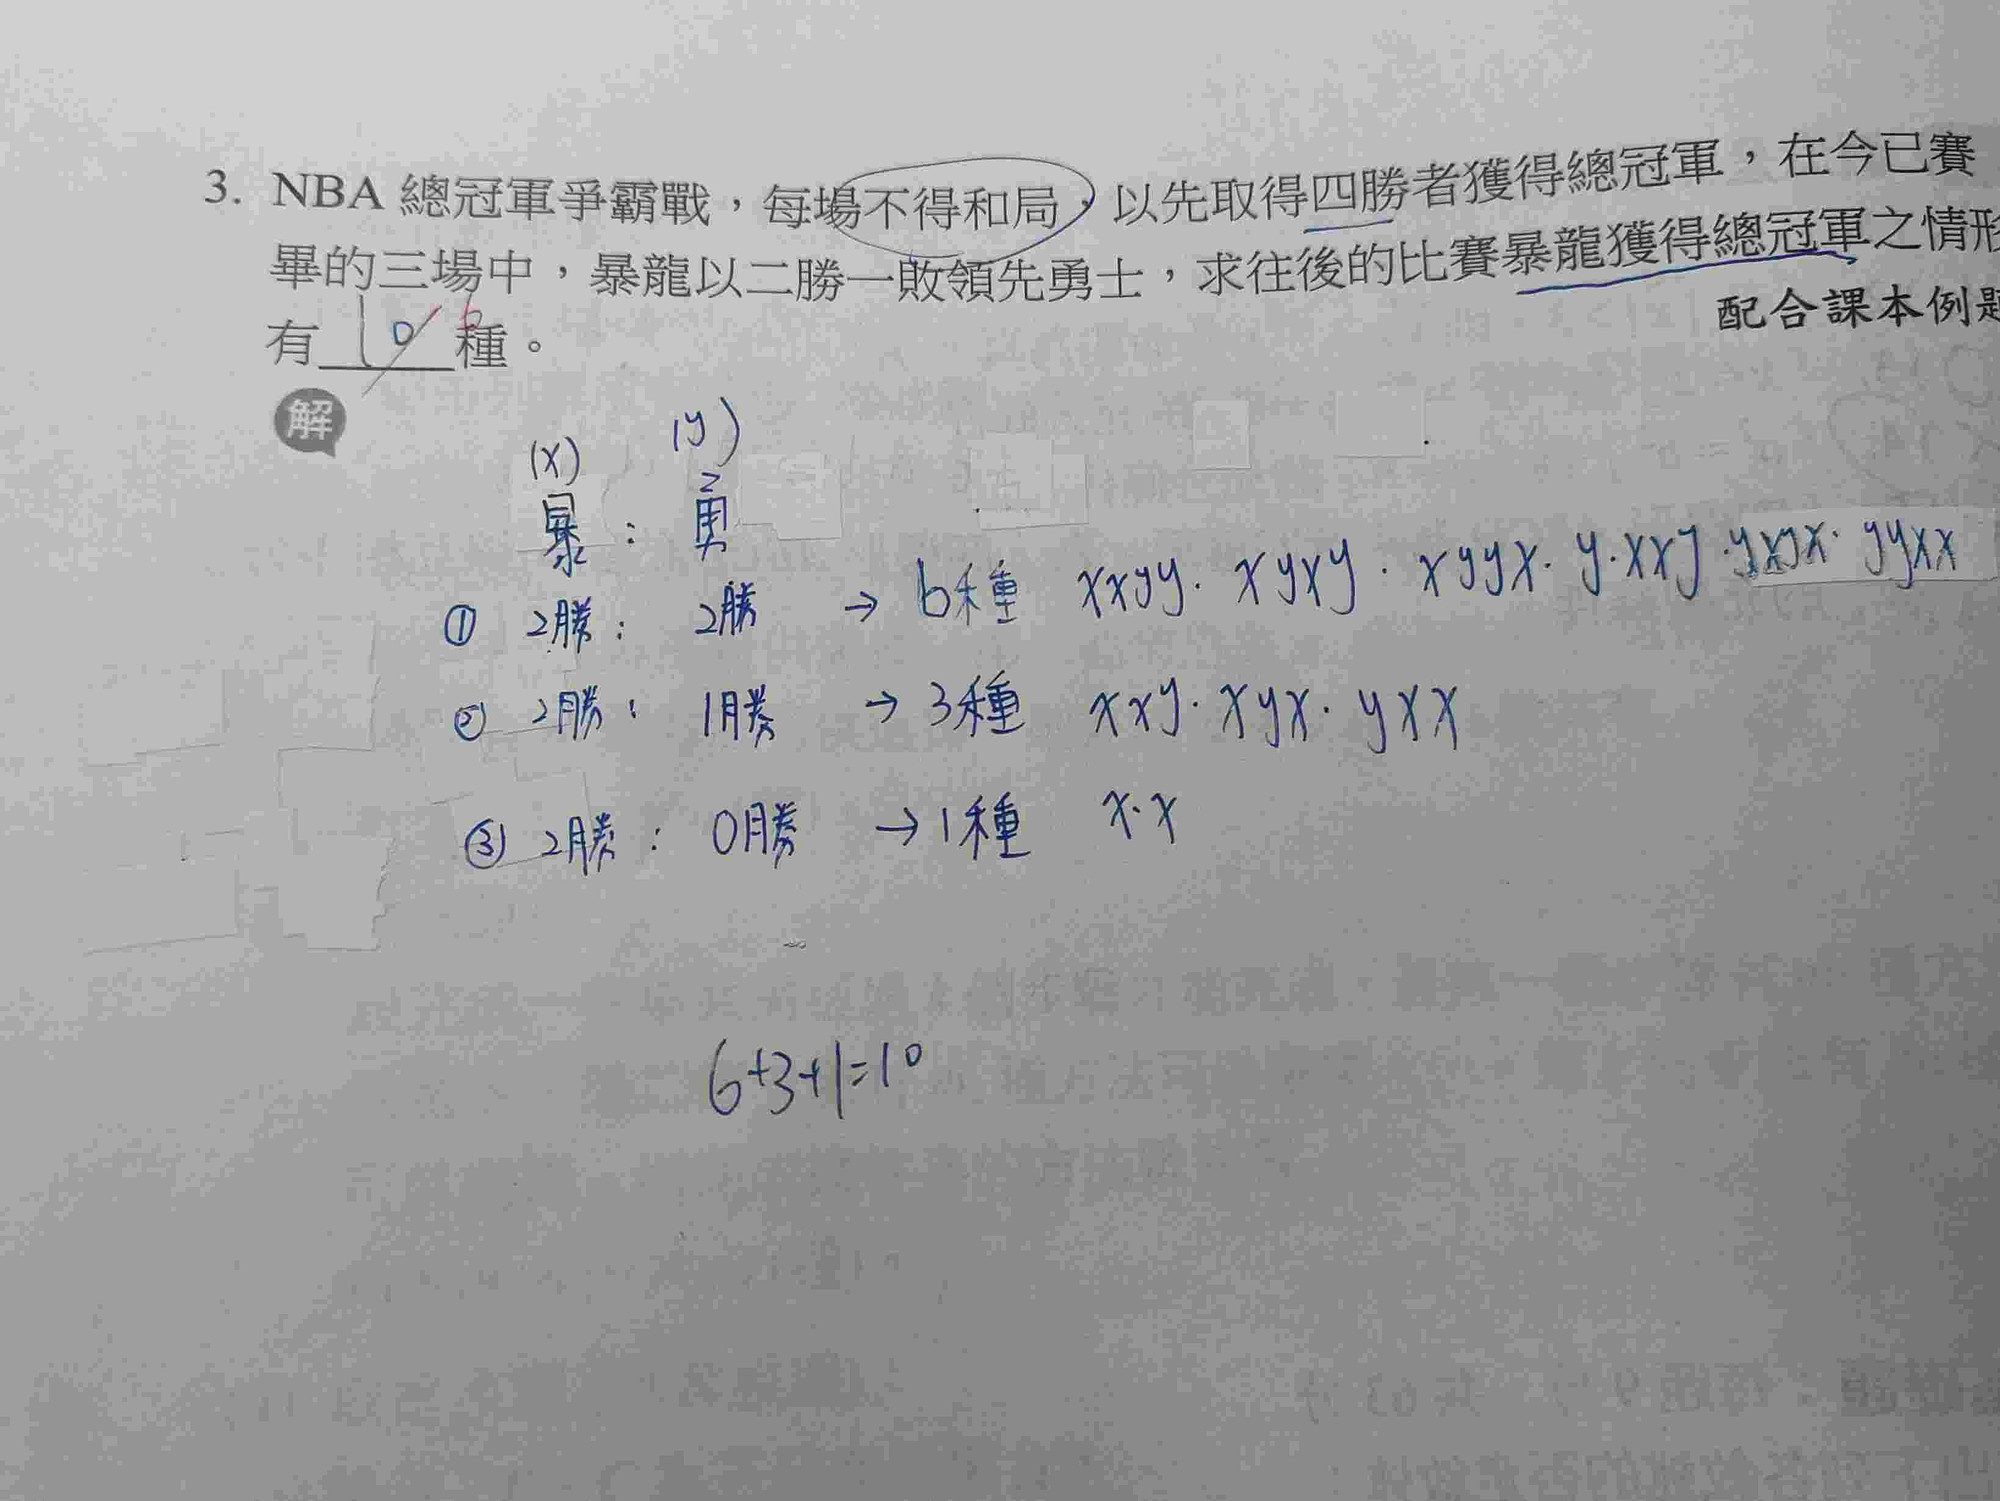 3. NBA 總冠軍爭霸戰，每場不得和局，以先取得四勝者獲得總冠軍，在今已賽
畢的三場中，暴龍以二勝一敗領先勇士，求往後的比賽暴龍獲得總冠軍之情形
有 10 6 種。
配合課本例題
解
(x) (y)
暴 : 勇
① 2勝 : 2勝 → 6種 xxyy. xyxy. xyyx. y.xxy .yxyx. yyxx
② 2勝 : 1勝 → 3種 xxy. xyx. yxx
③ 2勝 : 0勝 → 1種 x.x
6+3+1=10